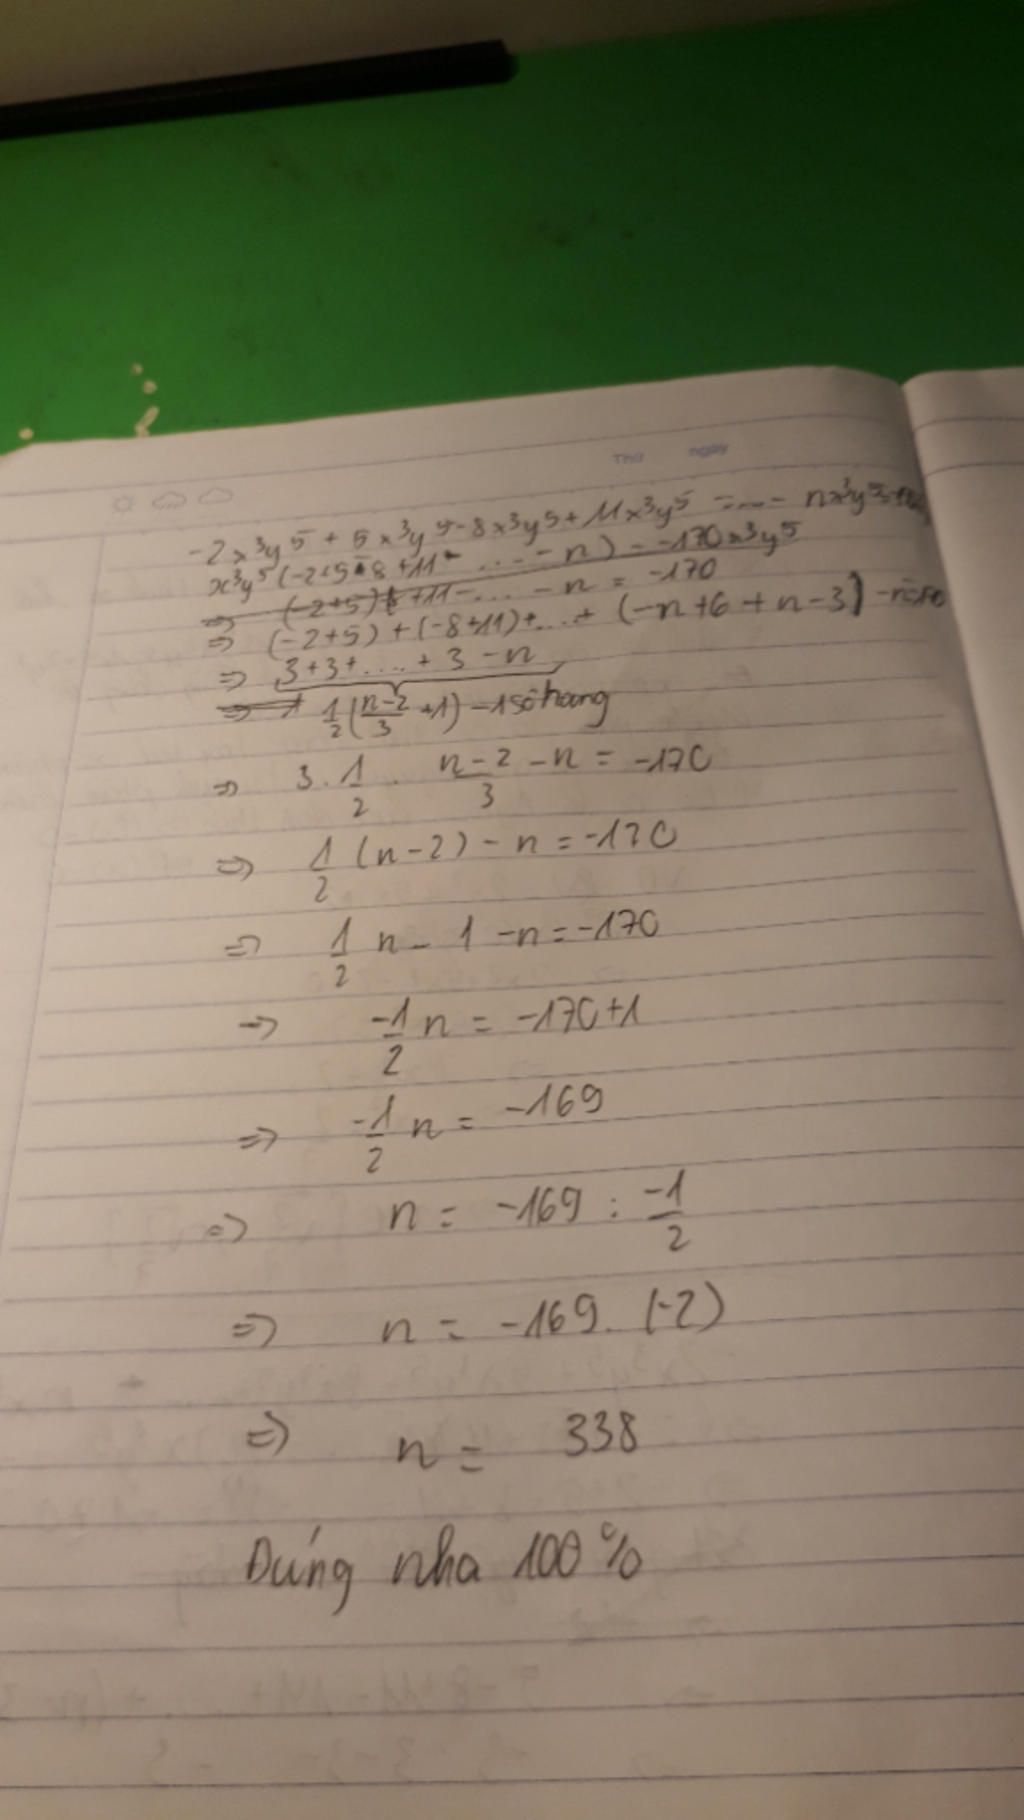 Thứ ngày
-2x³y⁵ + 5x³y⁵ - 8x³y⁵ + 11x³y⁵ = ... - nx³y⁵
x³y⁵(-2+5-8+11- ... - n) = -170x³y⁵
⇒ (-2+5) +11- ... - n = -170
⇒ (-2+5) + (-8+11) + ... + (-n+6+n-3) -n
⇒ 3+3+ .... + 3 - n
⇒ 1/2 ((n-2)/3 +1) - 1 số hạng
⇒ 3 . 1/2 . (n-2)/3 - n = -170
⇒ 1/2 (n-2) - n = -170
⇒ 1/2 n - 1 - n = -170
⇒ -1/2 n = -170+1
⇒ -1/2 n = -169
⇒ n = -169 : -1/2
⇒ n = -169 . (-2)
⇒ n = 338
Đúng nha 100%